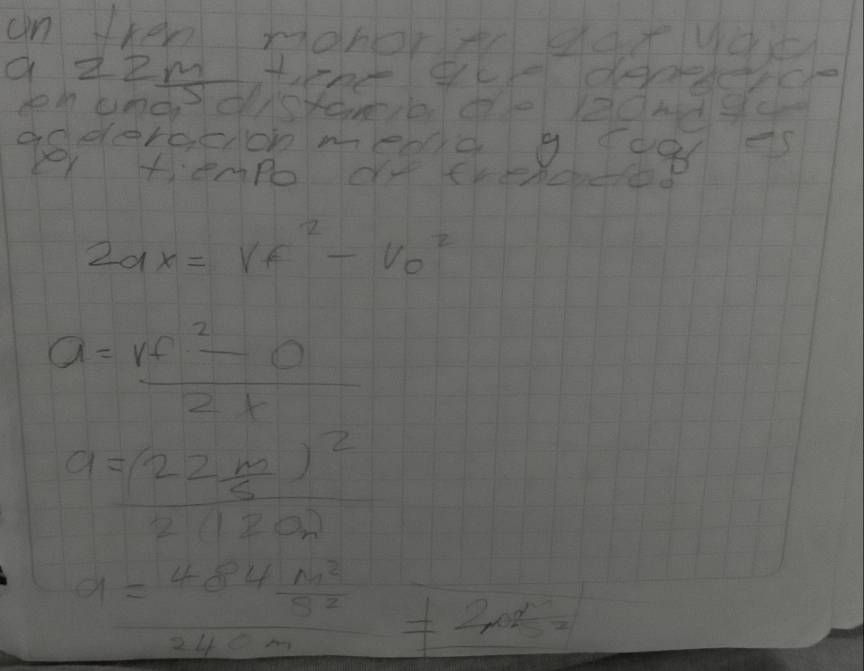 un tren monoriel que viaja
a 22 m/s tiene que detenerce
en una distancia de 120m ¿que
acderacion media y cual es
el tiempo de frenado?
2ax = vf² - vo²
a = vf² - 0
2x
a = (22 m/s)²
2(120m)
a = 484 m²/s²
240m
= 2